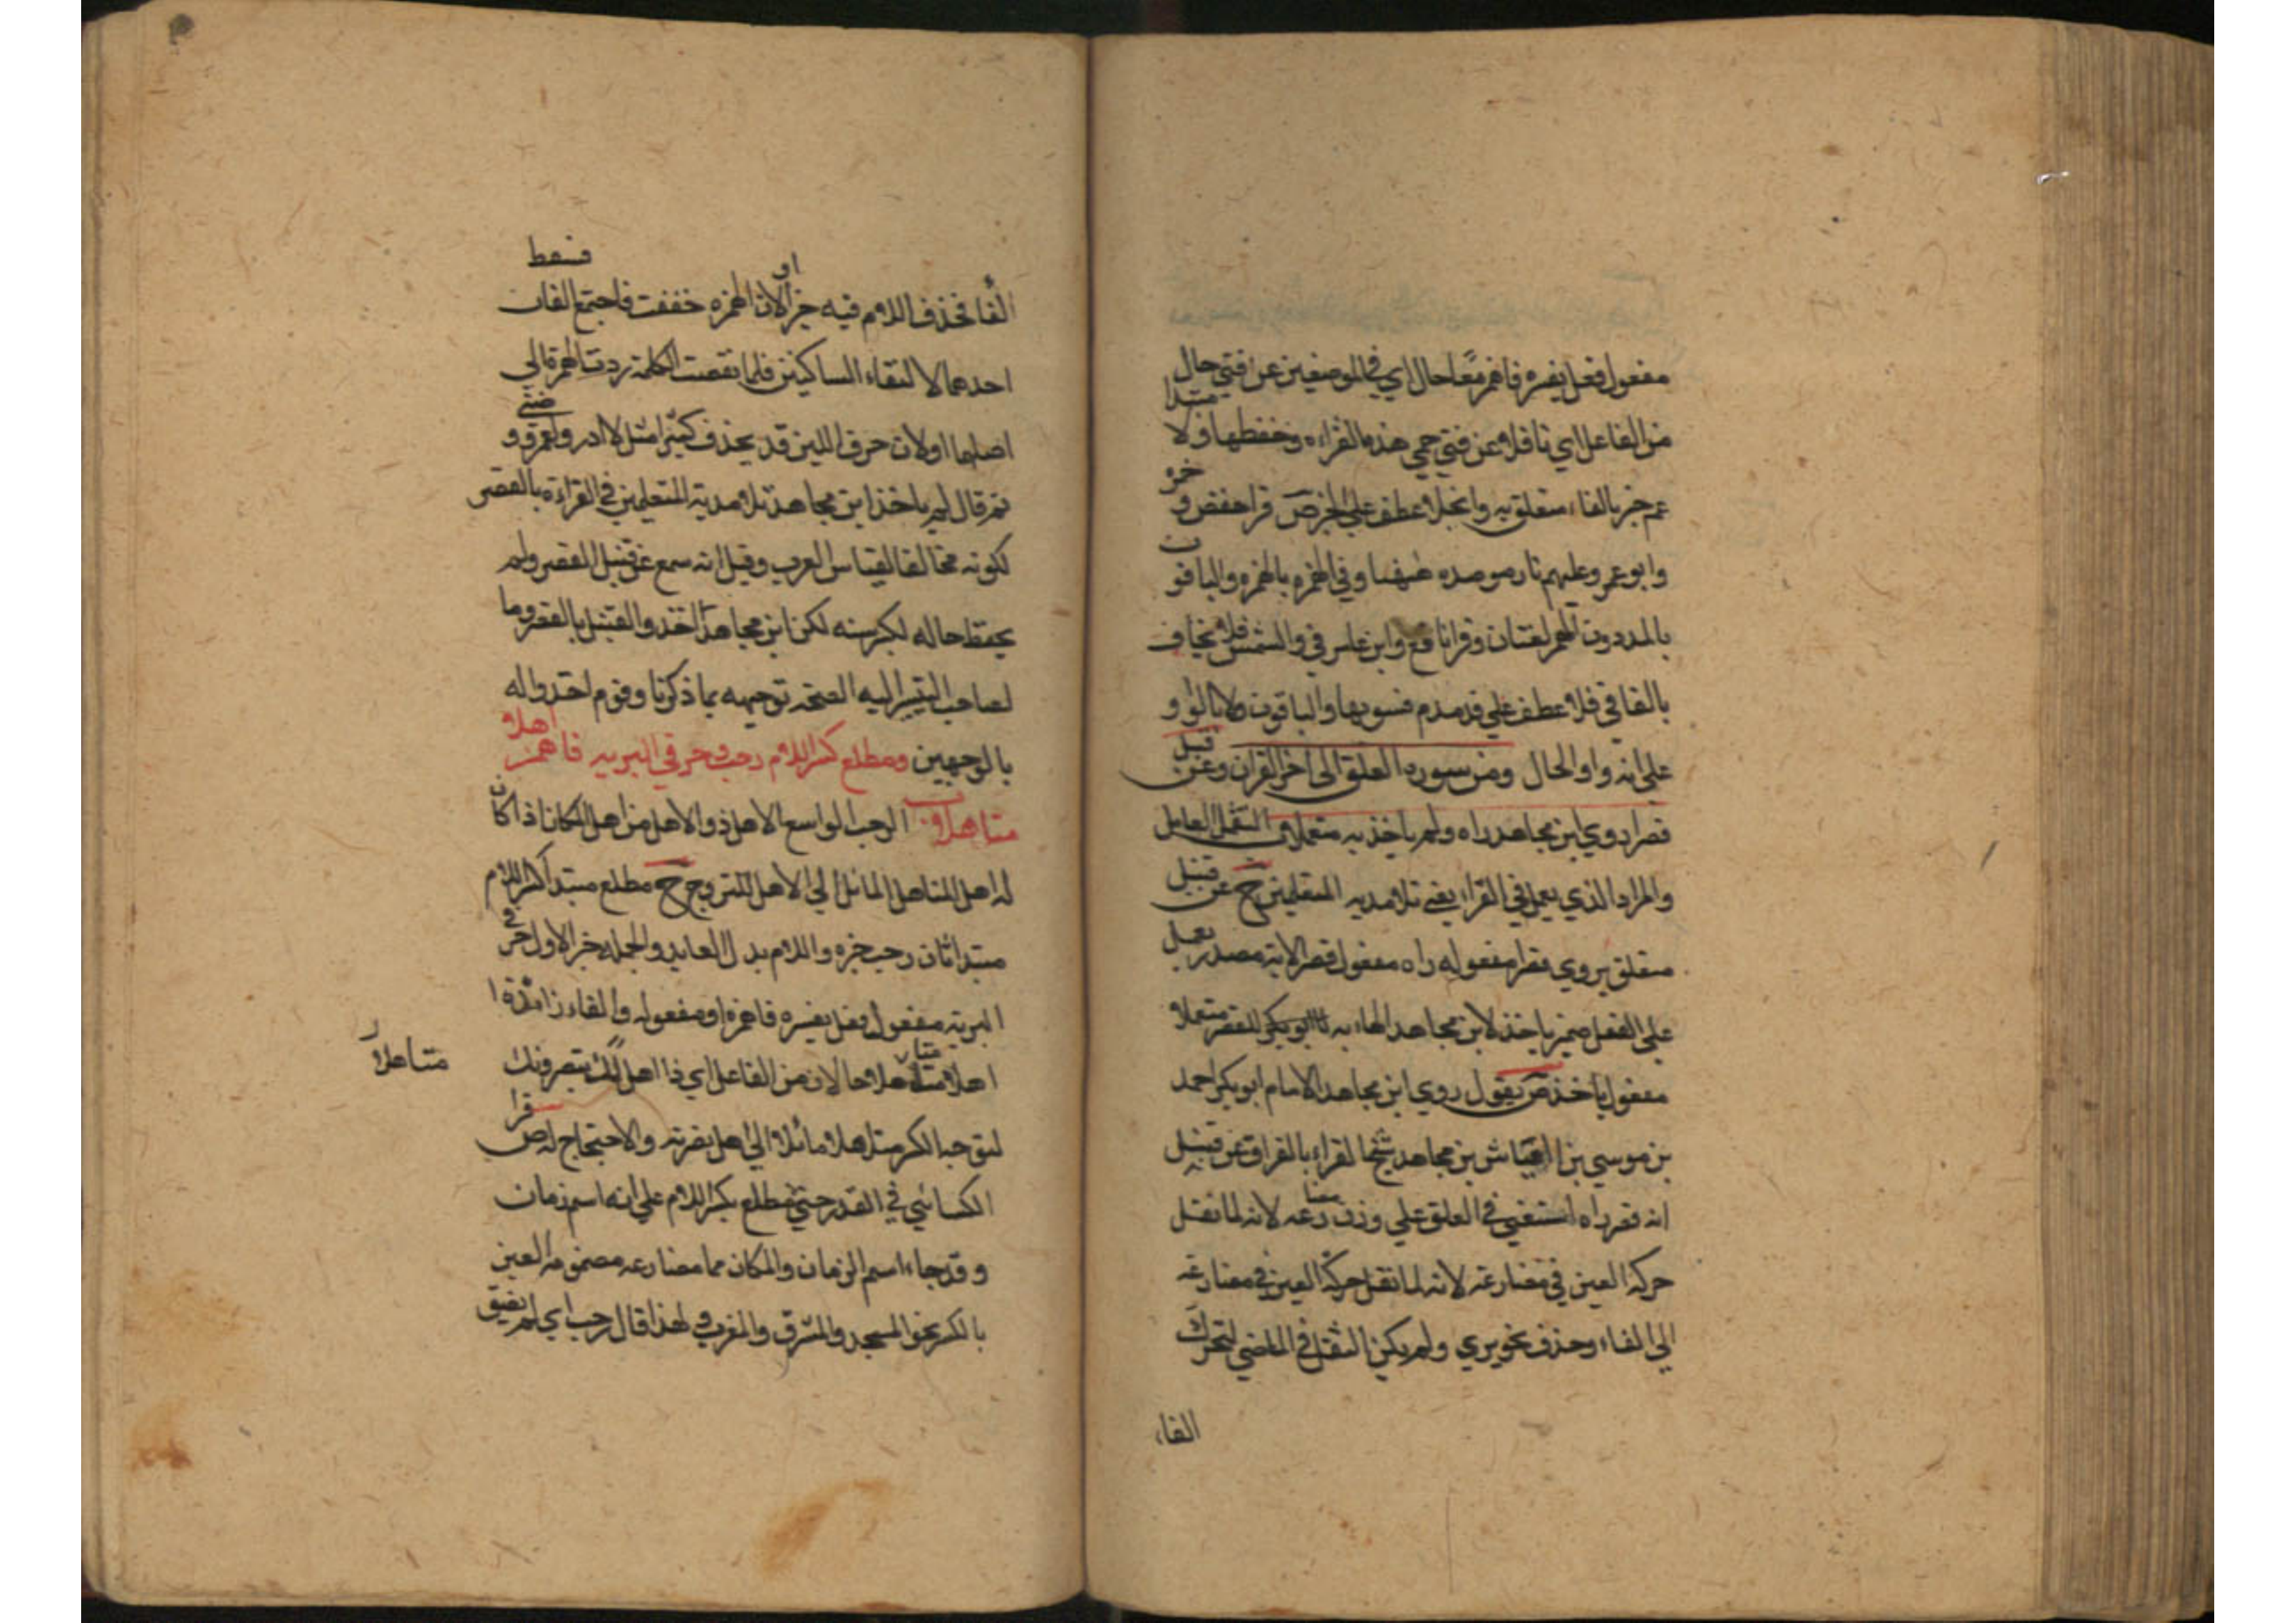 مفعول فعل يفسره فاهمز معا حال اي في الموضعين عن فتي حال
من الفاعل اي ناقلا عن فتي حمي هذه القراءه وحفظها ولا مبتدا
عم خبر بالفاء متعلق به وانجلا عطف علي الخبر ص قرا حفص و حمزه
وابو عمرو عليهم نار موصده هنا وفي الهمزه بالهمزه والباقون
بالمد دون الهمز لغتان وقرا نافع وابن عامر في والشمس فلا يخاف
بالفا في فلا عطف علي فدمدم فسويها والباقون ولا بالواو
علي انه واو الحال ومن سوره العلق الى اخر القران وعن قنبل
قصرا روي ابن مجاهد راه ولم ياخذ به متعملا العامل
والمراد الذي يعمل في القراء يعني تلامذيه المتعلمين ح عن قنبل
متعلق بروي قصرا مفعوله راه مفعول قصر الاية مصدر يعمل
علي الفعل ضمير ياخذ لابن مجاهد الهاء به للقصر متعملا
مفعول ياخذ ص يقول روي ابن مجاهد الامام ابو بكر احمد
بن موسي بن العباس بن مجاهد شيخ القراء بالعراق عن قنبل
انه قصر راه استغني في العلق علي وزن رعه لانه لما نقل
حركه العين في مضارعه لانه لما نقل حركة العين في مضارعه
الي الفاء وحذف نحو يري ولم يكن النقل في الماضي لتحرك
الفاء
الفا فحذف اللام فيه خبرا او لان الهمزه خففت فاجتمع الفان فسقط
احدهما لالتقاء الساكنين فلما نقصت الكلمة ردت الهمزة الي
اصلها او لان حرف اللين قد يحذف كثيرا مثل لا ادر ولعمرو و
ثم قال لم ياخذ ابن مجاهد تلامذيه المتعلمين في القراءة بالقصر
لكونه مخالفا لقياس العرب وقيل انه سمع عن قنبل القصر ولم
يحفظ حاله لكبر سنه لكن ابن مجاهد اخذ والقنبل بالقصر وما
لصاحب التيسير اليه توجيهه بما ذكرنا وقوم اخذوا له
بالوجهين ومطلع كسر اللام رحب وحرفي البريه فاهمز اهلا
متاهلا ب الرحب الواسع الاهل ذو الاهل من اهل المكان اذا كان
له اهل المتاهل المائل الي الاهل المتزوج ح مطلع مبتدا كسر اللام
مبتدا ثان رحب خبره واللام بدل العايد والجمله خبر الاول حرفي
البرية مفعول فعل يفسره فاهمز او مفعوله والفاء زائدة ا
اهلا متاهلا حالان من الفاعل اي ذا اهل لك ينصرونك
متاهلا
لتوجيه الكسر متاهلا مائلا الي اهل نصرته والاحتجاج له ص قرا
الكسائي في القدر حتي مطلع بكسر اللام علي انه اسم زمان
وقد جاء اسم الزمان والمكان مما مضارعه مضمومه العين
بالكسر نحو المسجد والمشرق والمغرب ولهذا قال رحب اي لم يضيق